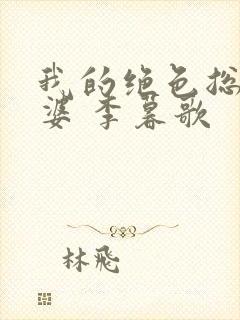 我的绝色总
婆 李暮歌
林飛